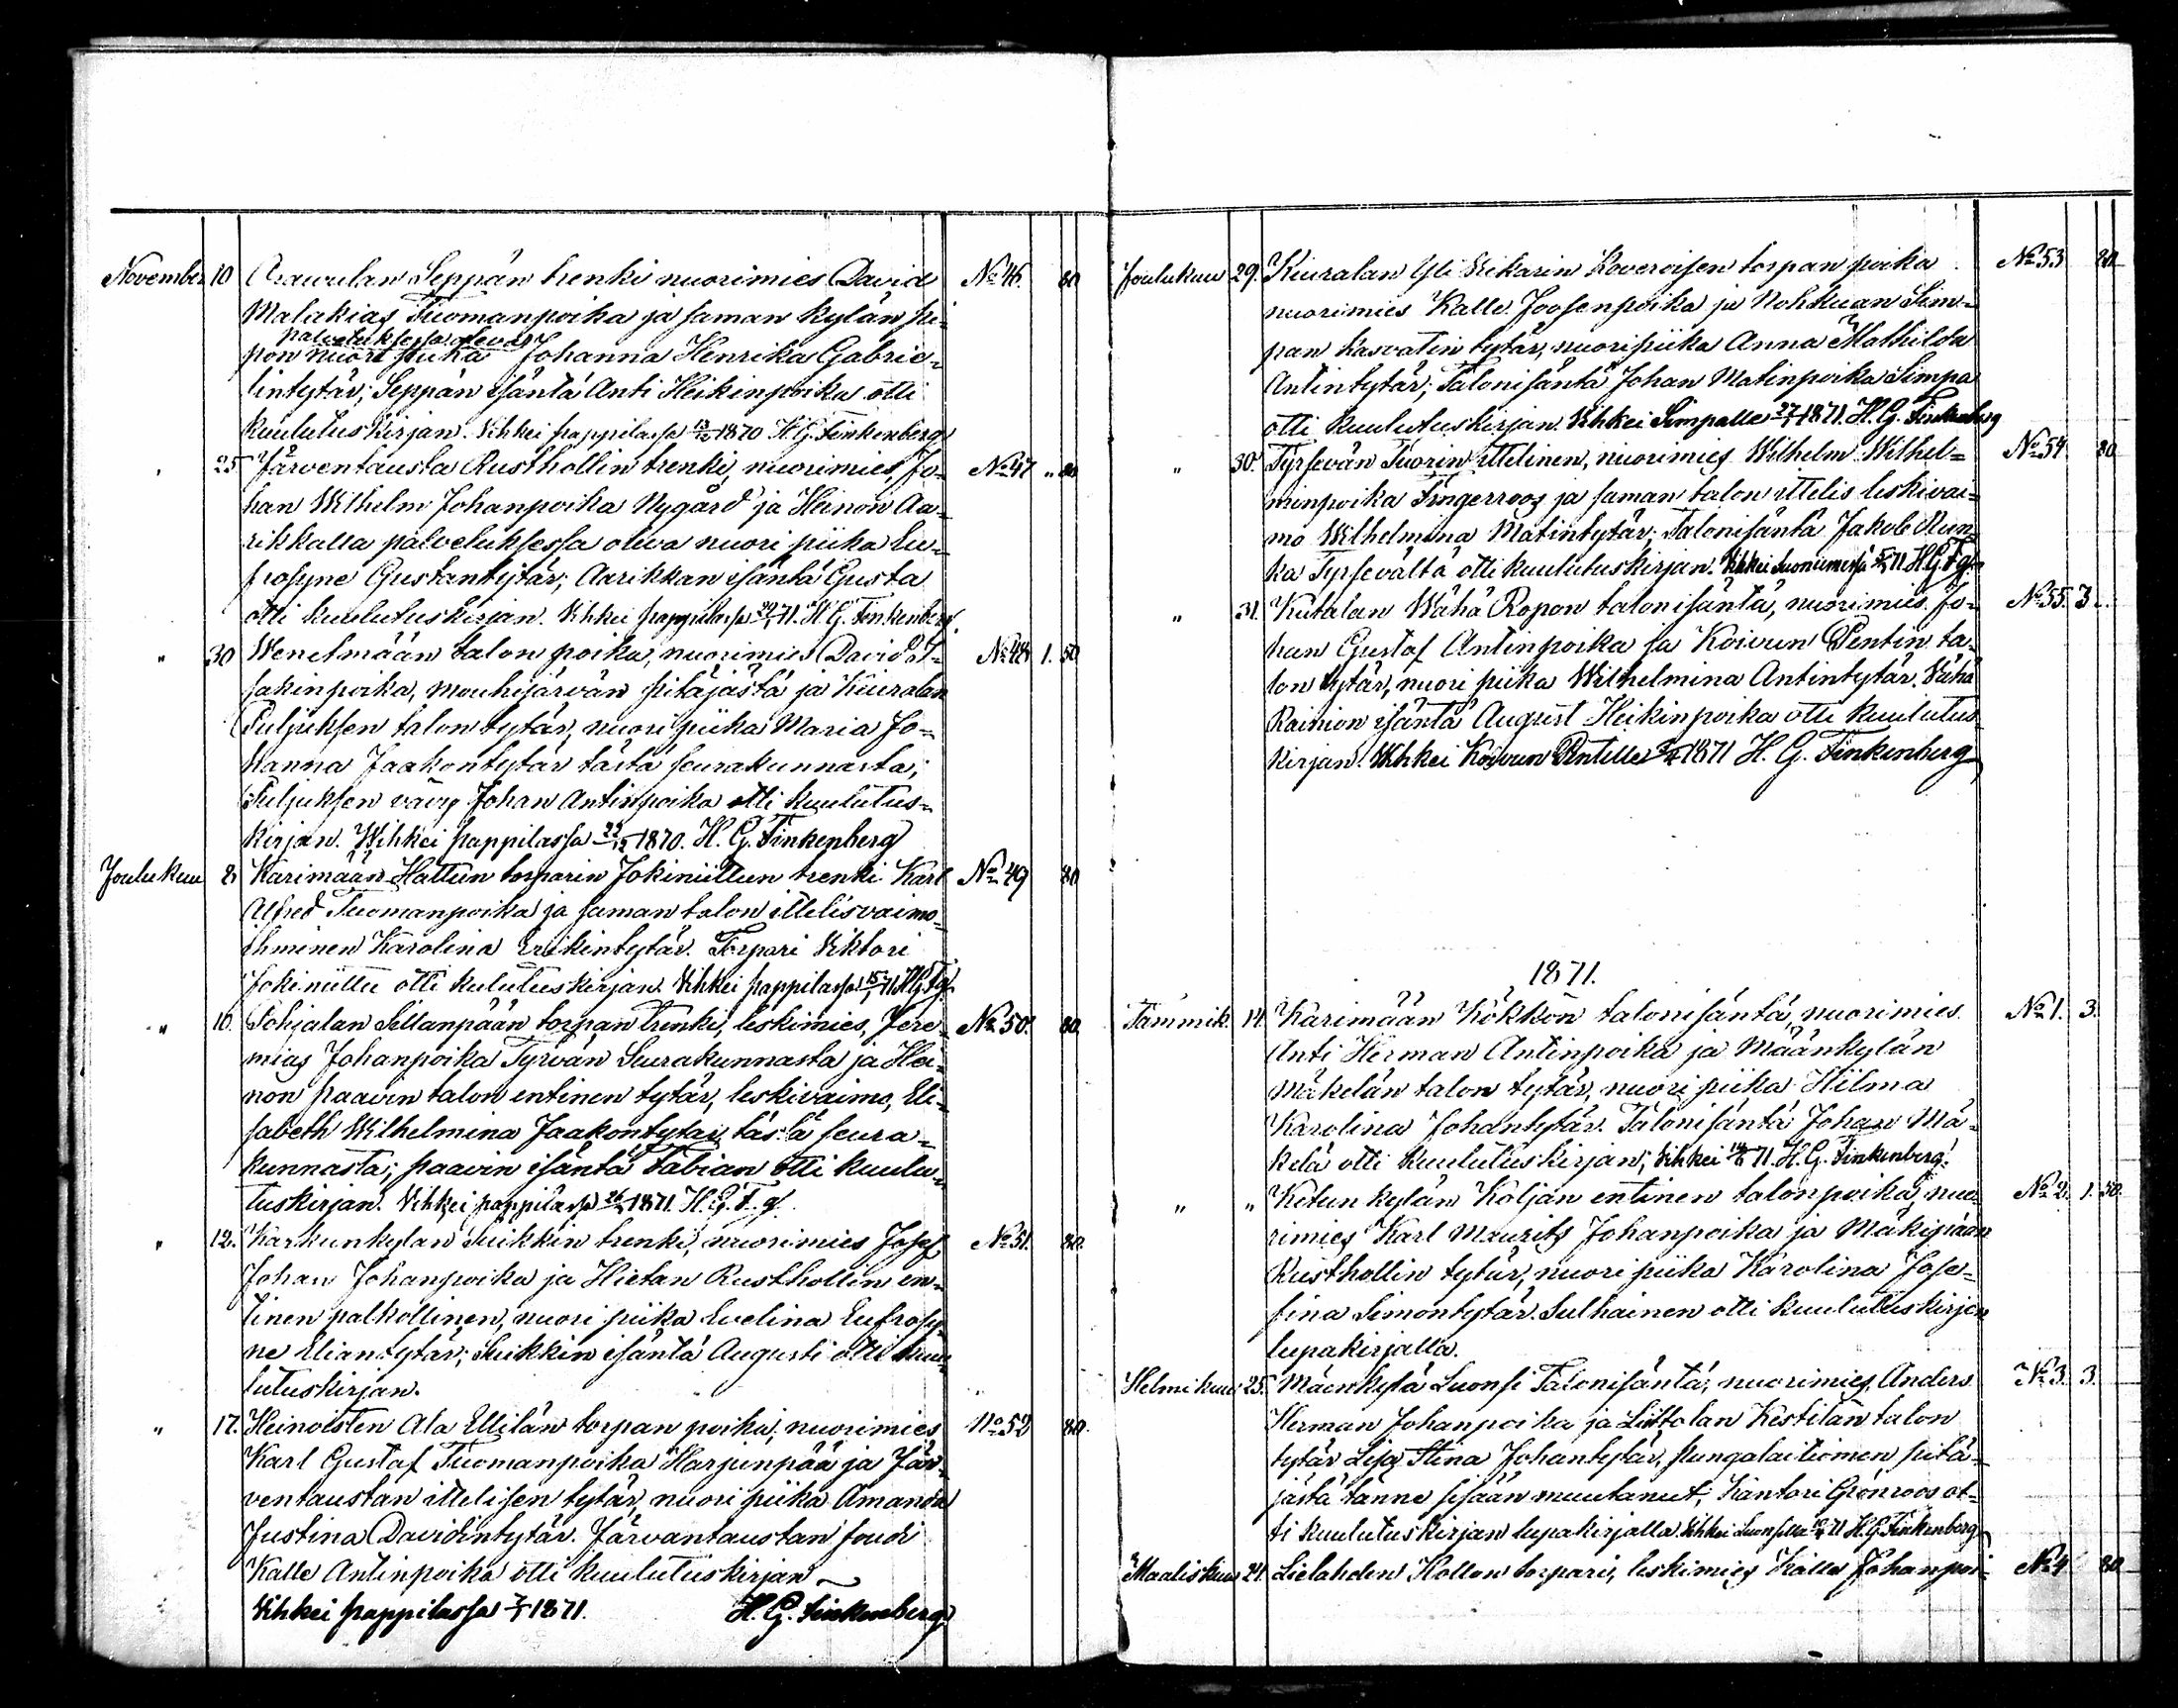 November 10 Seppän trenki nuorimies David No 46. 80
Malakias Tuomanpoika ja saman kylän pi-
palveluksessa oleva
pon nuori piika Johanna Henrika Gabrie-
lintytär; Seppän isäntä Anti Heikinpoika otti
kuulutuskirjan. Vihkei pappilassa 13/12 1870 H. G. Finkenberg
" 25 Järventausta Rusthollin trenki, nuorimies, Jo- No 47 " 80
han Wilhelm Johanpoika Nygård ja Heinon Aa-
rikkalla palveluksessa oleva nuori piika Eu-
frosyne Gustantytär; Aarikkan isäntä Gusta
otti kuulutuskirjan. Vihkei pappilassa 71. H. G. Finkenberg.
" 30 Wenelmään talon poika, nuorimies David I- No 48 1. 50
sakinpoika, mouhijärvän pitäjästä ja Kiuralan
Puljuksen talon tytär, nuori piika Maria Jo-
hanna Jaakontytär tästä seurakunnasta;
Puljuksen vävy Johan Antinpoika otti kuulutus-
kirjan. Wihkei pappilassa 22/12 1870. H. G. Finkenberg
Joulukuu 2 Karimään Hattun torparin Jokiniittun trenki Karl No 49 80
Alfred Tuomanpoika ja saman talon ittelisvaimo-
ihminen Karolina Erikintytär. Torpari Viktori
Jokiniittu otti kulutuskirjan. Vihkei pappilassa 15/1 71 H G Fg.
" 10. Pohjalan Sillanpään torpan trenki, leskimies, Jere- No 50. 80.
mias Johanpoika Tyrvän Seurakunnasta ja Hei-
non paavin talon entinen tytär, leskivaimo, Eli-
sabeth Wilhelmina Jaakontytar tästä seura-
kunnasta; paavin isäntä Fabian otti kuulu-
tuskirjan. Vihkei pappilassa 1871. H. G. F. g.
" 12. Karkunkylan Suikkin trenki, nuorimies Josef No 51. 80.
Johan Johanpoika ja Hietan Rusthollin en-
tinen palkollinen, nuori piika Evelina Eufrosy-
ne Eliantytär; Suikkin isäntä Augusti otti kuu-
lutuskirjan.
" 17. Heinoisten Ala Ellilän torpan poika, nuorimies No 52 80.
Karl Gustaf Tuomanpoika Harjunpää ja Jär-
ventaustan ittelisen tytär, nuori piika Amanda
Justina Davidintytär. Järvantaustan foudi
Kalle Antinpoika otti kuulutuskirjan
Vihkei pappilassa 1871. H. G. Finkenberg.
Joulukuu 29. Kiuralan Yli Krikarin Koveroisen torpan poika No 53 80
nuorimies Kalle Joosenpoika ja Nohkuan Sim-
pan kasvatin tytär, nuori piika Anna Mathilda
Antintytär; Talonisäntä Johan Matinpoika Simpa
otti kuulutuskirjan. Vihkei Simpalle 1871. H. G. Finkenberg
" 30. Tyrsevän Tuorin ittelinen, nuorimies Wilhelm Wilhel- No 54 80
minpoika Fingerroos ja saman talon ittelis leskivai-
mo Wilhelmina Matintytär; Talonisäntä Jakob Run
ka Tyrsevältä otti kuulutuskirjan. Vihkei 71 H G Fg.
" 31. Kutalan Wähä Ropon talonisäntä, nuorimies Jo- No 55. 3 "
han Gustaf Antinpoika ja Koivun Pentin ta-
lon tytär, nuori piika Wilhelmina Antintytär. Vähä
Rainion isäntä August Heikinpoika otti kuulutus-
kirjan. Vihkei Koivun Pentille 1871 H. G. Finkenberg
1871.
Tammik. 14. Karimään Kökkön talonisäntä, nuorimies No 1. 3.
Anti Herman Antinpoika ja Määnkylän
Mäkelän talon tytär, nuori piika Hilma
Karolina Johantytär. Talonisäntä Johan Mä-
kelä otti kuulutuskirjan; Vihkei 71 H. G. Finkenberg.
" " Ketun kylän Köljän entinen talonpoika, nuo- No 2. 1. 50.
rimies Karl Maurits Johanpoika ja Mäkipään
Rusthollin tytär, nuori piika Karolina Jose-
fina Simontytär. Sulhainen otti kuulutuskirjan
lupakirjalla.
Helmikuu 25. Mäenkylä Luonsi Talonisäntä, nuorimies, Anders No 3. 3.
Herman Johanpoika ja Liittolan Kestilän talon
tytär Lisa Stina Johantytär, pungalaitiomen pitä-
jästä tänne sisään muutanut; Kantori Grönroos ot-
ti kuulutuskirjan lupakirjalla. Vihkei Luonsilla 71 H. G. Finkenberg
Maaliskuu 21. Lielahden Hollon torpari, leskimies Kalle Johanpoi- No 4 80